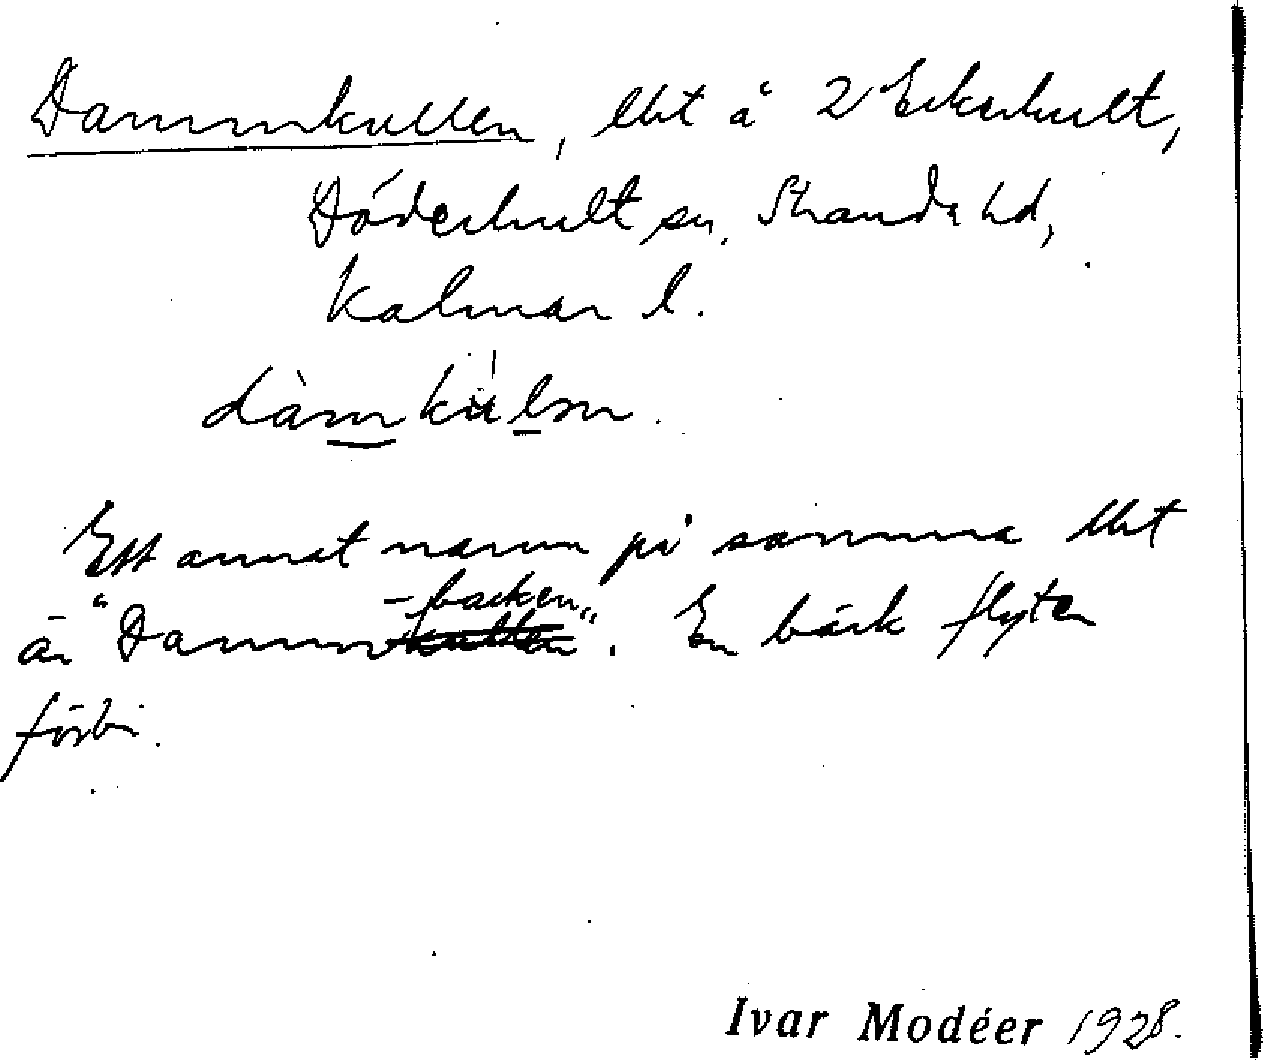 Dammkullen, lht å 2 Eckerhult,
Döderhult sn, Stranda hd,
Kalmar l.
dàmkulən.
Ett annat namn på samma lht
-backen
är "Dammkullen". En bäck flyter
förbi.
Ivar Modéer 1928.